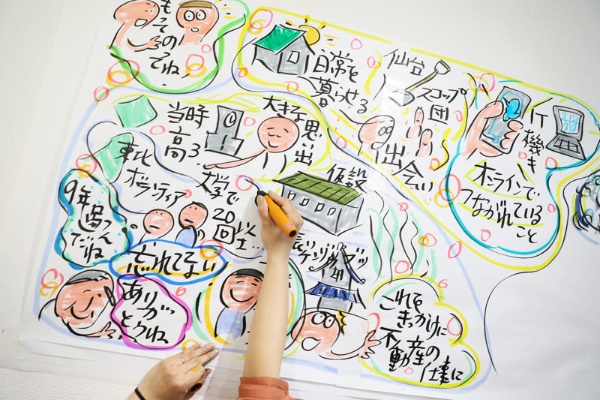 もっての
るてね
日常を
暮らせる
仙台
スコップ
団
出会い
IT
機き
オンラインで
つながれている
こと
当時
高3
大きな思い
出
東北
ボランティア
大学で
20
回以上
仮設
9年
過ぎたん
だね
忘れてない
ありが
とうね
これを
きっかけに
不動産の
仕事に